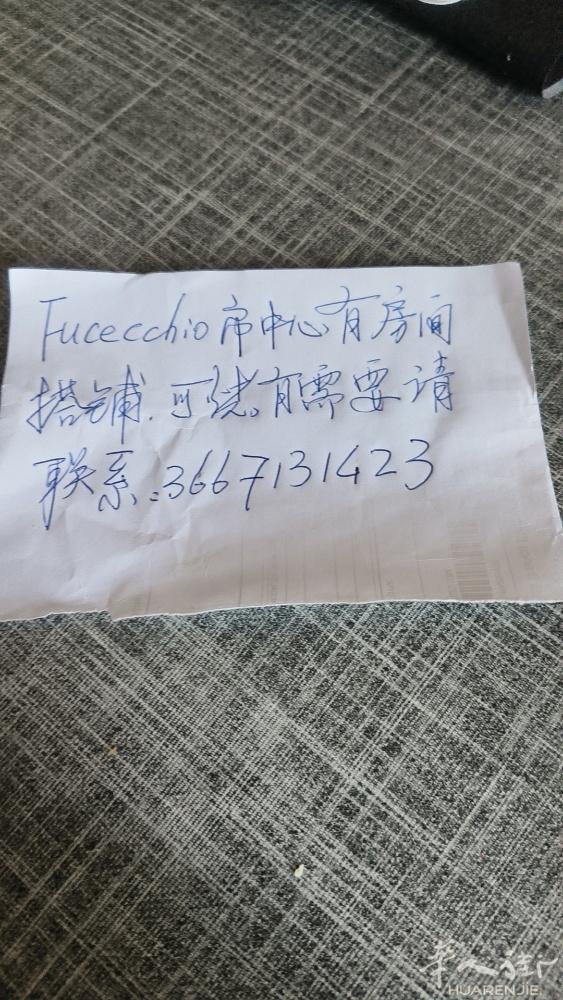 Fucecchio市中心有房间
搭铺.可烧。有需要请
联系:3667131423
华人街
HUARENJIE.